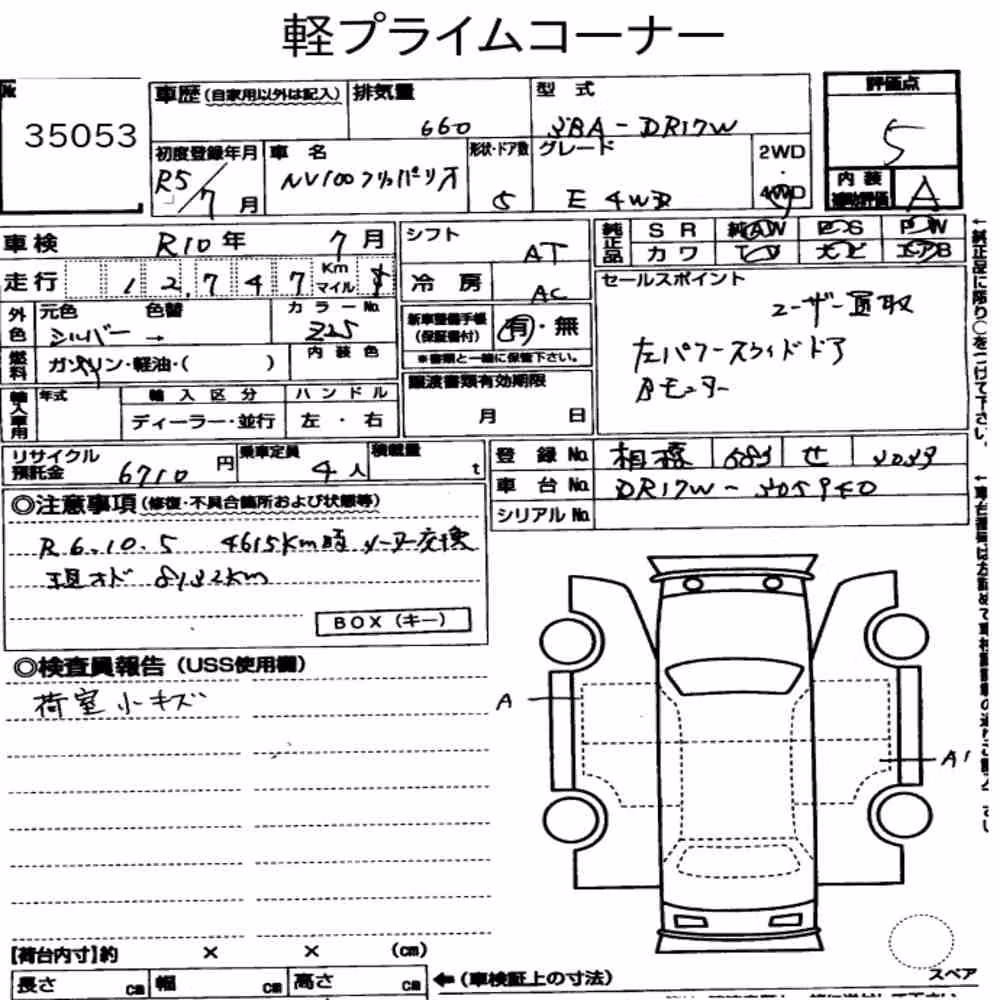 軽プライムコーナー
№ 35053
車歴(自家用以外は記入) 排気量 660 型式 3BA-DR17W 評価点 5
初度登録年月 R5/7月 車名 NV100クリッパーリオ 形状・ドア数 5 グレード E 4WD 2WD・4WD 内装補助評価 A
車検 R10年 7月 シフト AT 純正品 SR 純AW PS PW
走行 12,747 Km マイル 冷房 AC カワ TV ナビ エアB
外色 元色 シルバー 色替 → カラーNo. Z25 新車整備手帳(保証書付) 有・無
※書類と一緒に保管下さい。
セールスポイント
ユーザー買取
左パワースライドドア
Bモニター
燃料 ガソリン・軽油・( ) 内装色
譲渡書類有効期限 月 日
輸入車用 年式 輸入区分 ディーラー・並行 ハンドル 左・右
リサイクル預託金 6710円 乗車定員 4人 積載量 t
登録No. 相模 583 せ
車台No. DR17W-305940
シリアルNo.
◎注意事項(修復・不具合箇所および状態等)
R6.10.5 4615Km時 メーター交換
現オド 8132km
BOX(キー)
◎検査員報告(USS使用欄)
荷室小キズ
A
A1
【荷台内寸】約 × × (cm)
長さ cm 幅 cm 高さ cm ←(車検証上の寸法)
スペア
←純正品に限り○をつけて下さい。